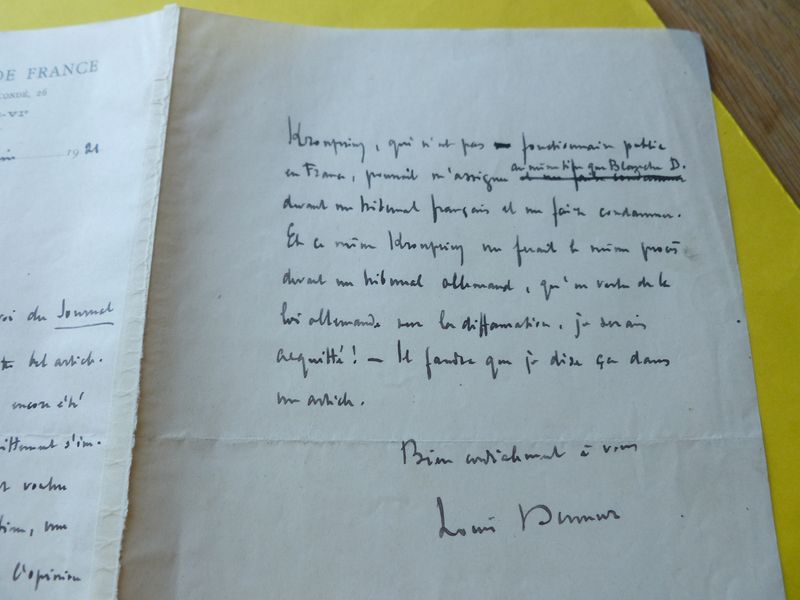 DE FRANCE
CONDÉ, 26
VIᵉ
1921
du Journal
bel article.
encore été
s'im-
voulu
l'opinion
Kronprinz, qui n'est pas fonctionnaire public
en France, pourrait m'assigner au même titre que Blanche D.
devant un tribunal français et me faire condamner.
Et ce même Kronprinz me ferait le même procès
devant un tribunal allemand, qu'en vertu de la
loi allemande sur la diffamation, je serais
acquitté! — Il faudra que je dise ça dans
un article.
Bien cordialement à vous
Louis Dumur